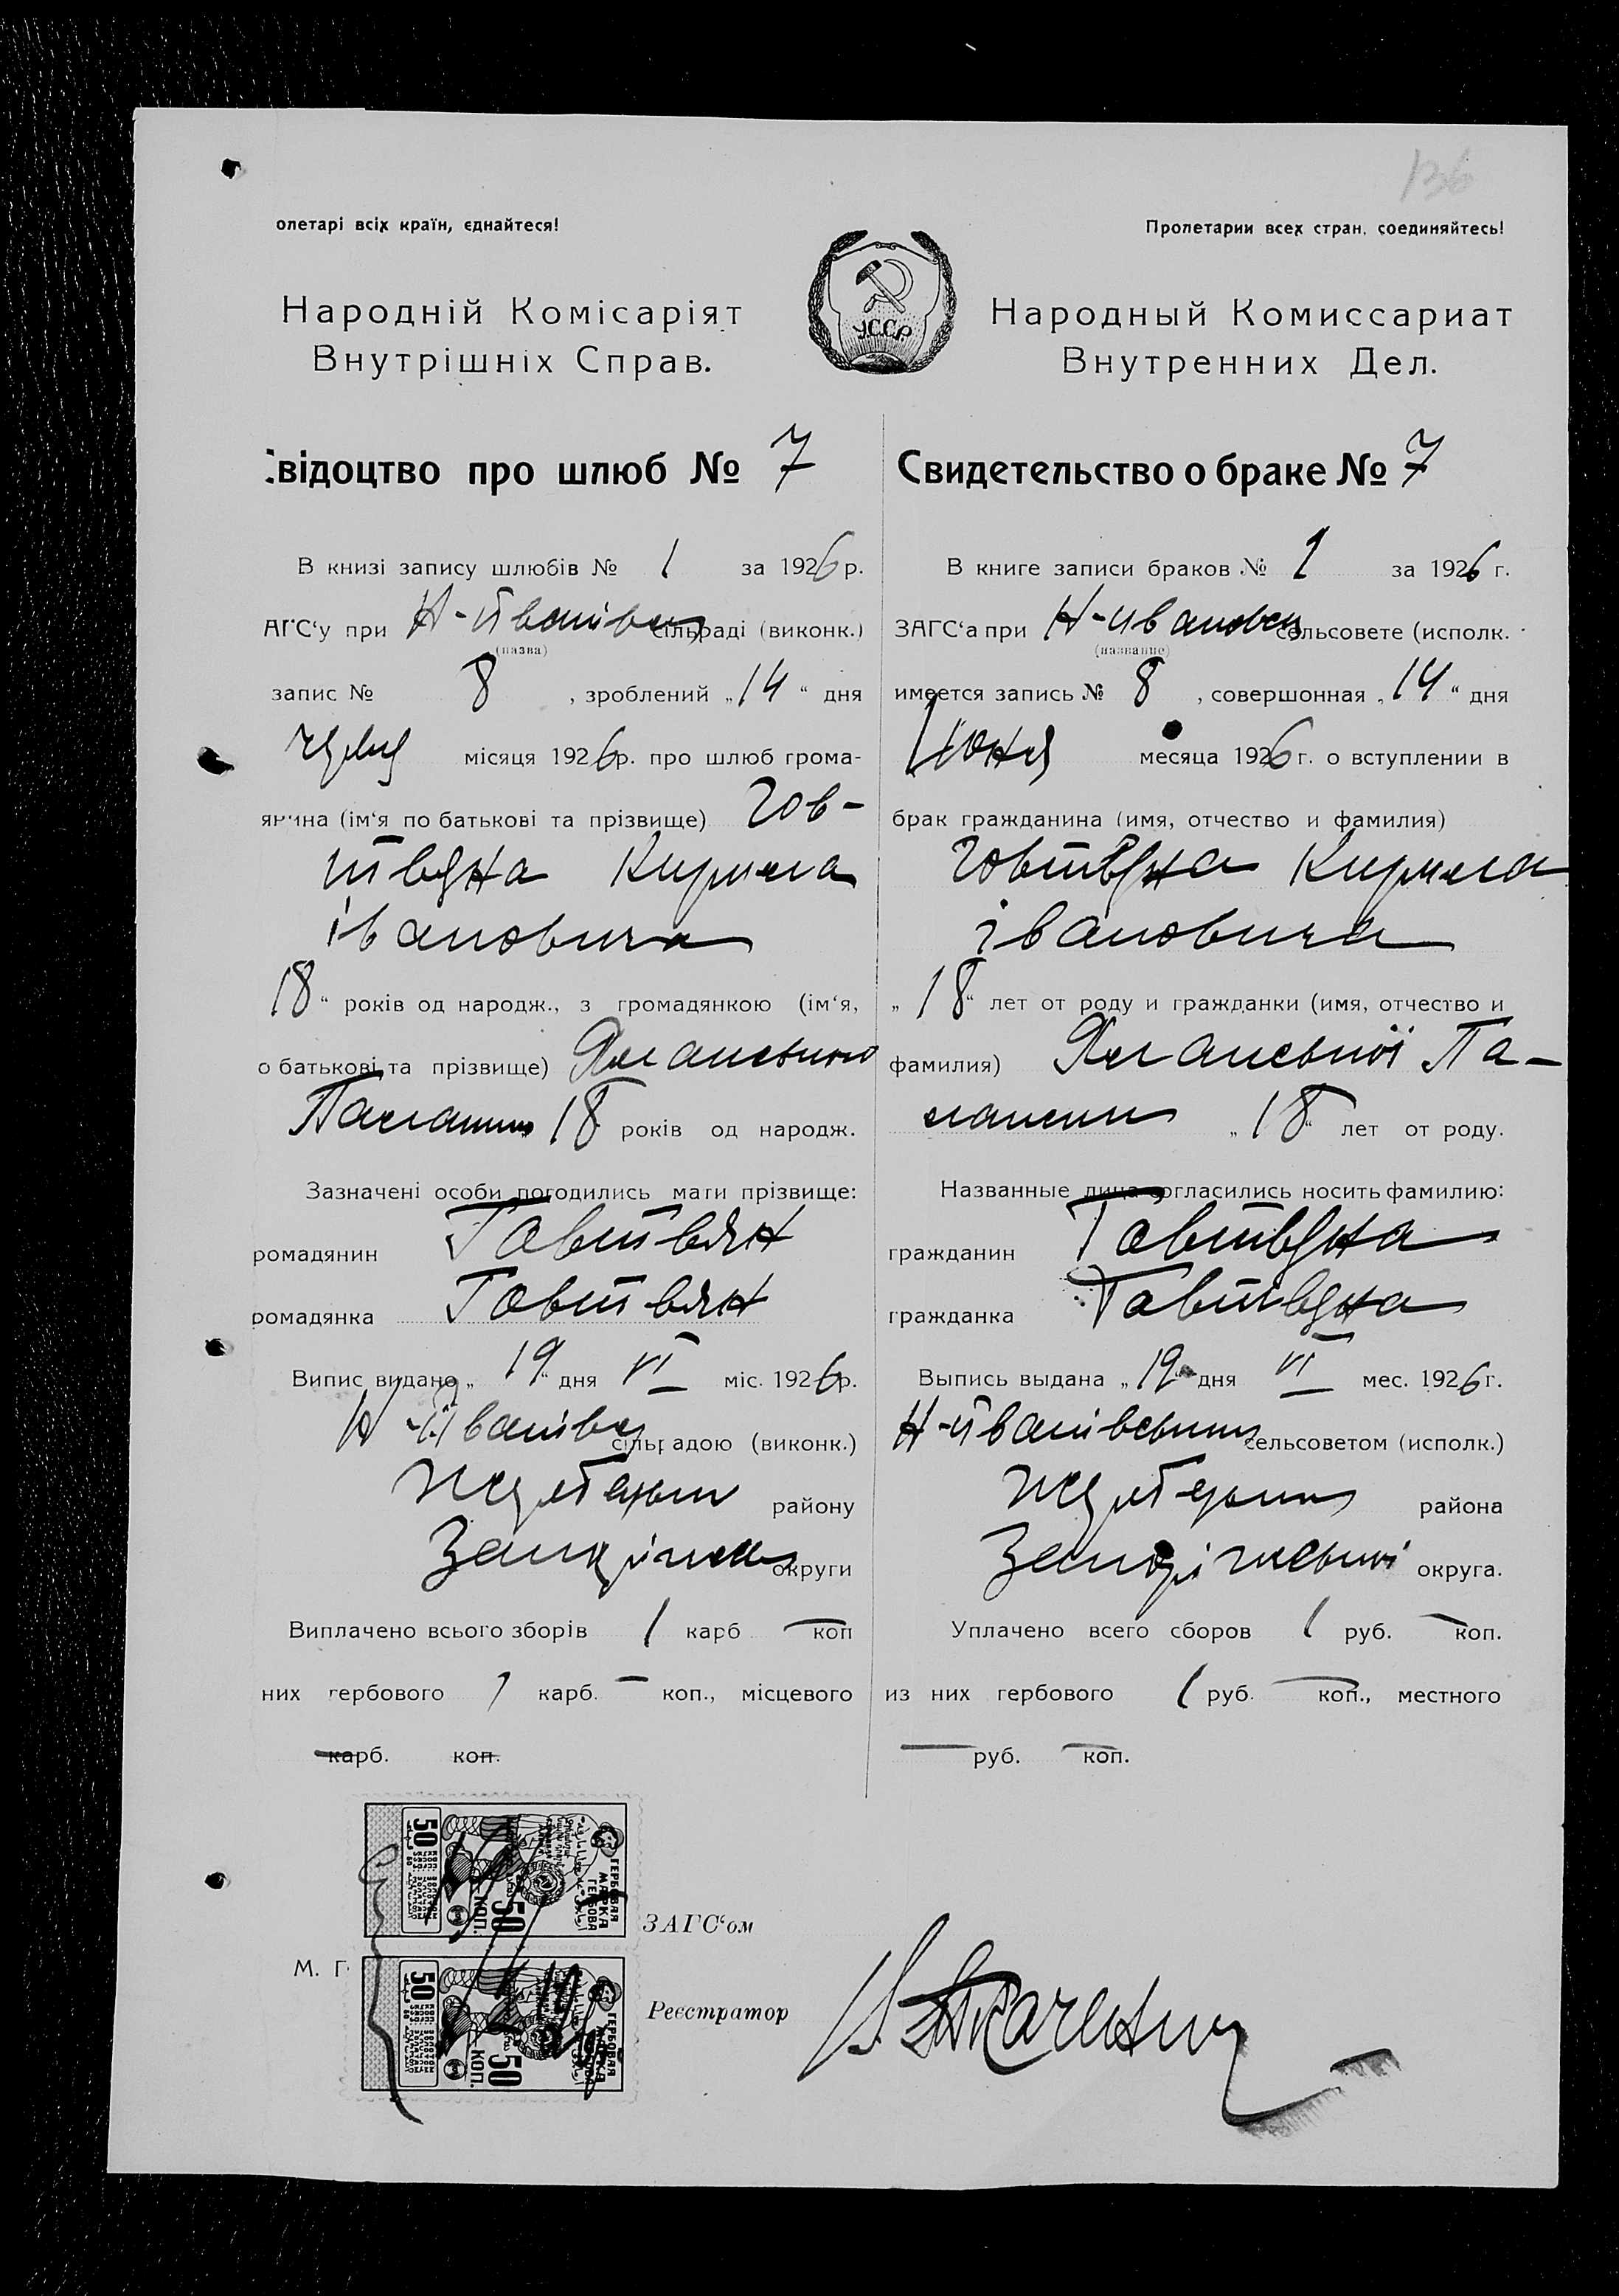 136
олетарі всіх країн, єднайтеся!
Народній Комісаріят
Внутрішніх Справ.
Пролетарии всех стран, соединяйтесь!
Народный Комиссариат
Внутренних Дел.
У.С.С.Р.
відоцтво про шлюб № 7
В книзі запису шлюбів № 1 за 1926 р.
АГС'у при Н-Іванівсь сільраді (виконк.)
(назва)
запис № 8 , зроблений „14“ дня
червня місяця 1926 р. про шлюб грома-
янина (ім'я по батькові та прізвище) Гов-
твяна Кирила
івановича
18“ років од народж., з громадянкою (ім'я,
о батькові та прізвище)
18 років од народж.
Зазначені особи погодились мати прізвище:
ромадянин Говтвян
ромадянка Говтвян
Випис видано „19“ дня VI міс. 1926 р.
Н-Іванівсь сільрадою (виконк.)
району
округи
Виплачено всього зборів 1 карб — коп
них гербового 1 карб. — коп., місцевого
карб. коп.
Свидетельство о браке № 7
В книге записи браков № 1 за 1926 г.
ЗАГС'а при Н-Ивановск сельсовете (исполк.
(название)
имеется запись № 8 , совершонная „14“ дня
Июня месяца 1926 г. о вступлении в
брак гражданина (имя, отчество и фамилия)
Говтвяна Кирила
івановича
„18“ лет от роду и гражданки (имя, отчество и
фамилия) Па-
„18“ лет от роду.
Названные лица согласились носить фамилию:
гражданин Говтвяна
гражданка Говтвяна
Выпись выдана „19“ дня VI мес. 1926 г.
Н-Іванівським сельсоветом (исполк.)
района
Запорізької округа.
Уплачено всего сборов 1 руб. — коп.
из них гербового 1 руб. — коп., местного
— руб. — коп.
ГЕРБОВАЯ
МАРКА
ГЕРБОВА
50
КОП.
50
ЗАГС'ом
М. П
ГЕРБОВАЯ
МАРКА
50
КОП.
50
Реєстратор
Ткаченко